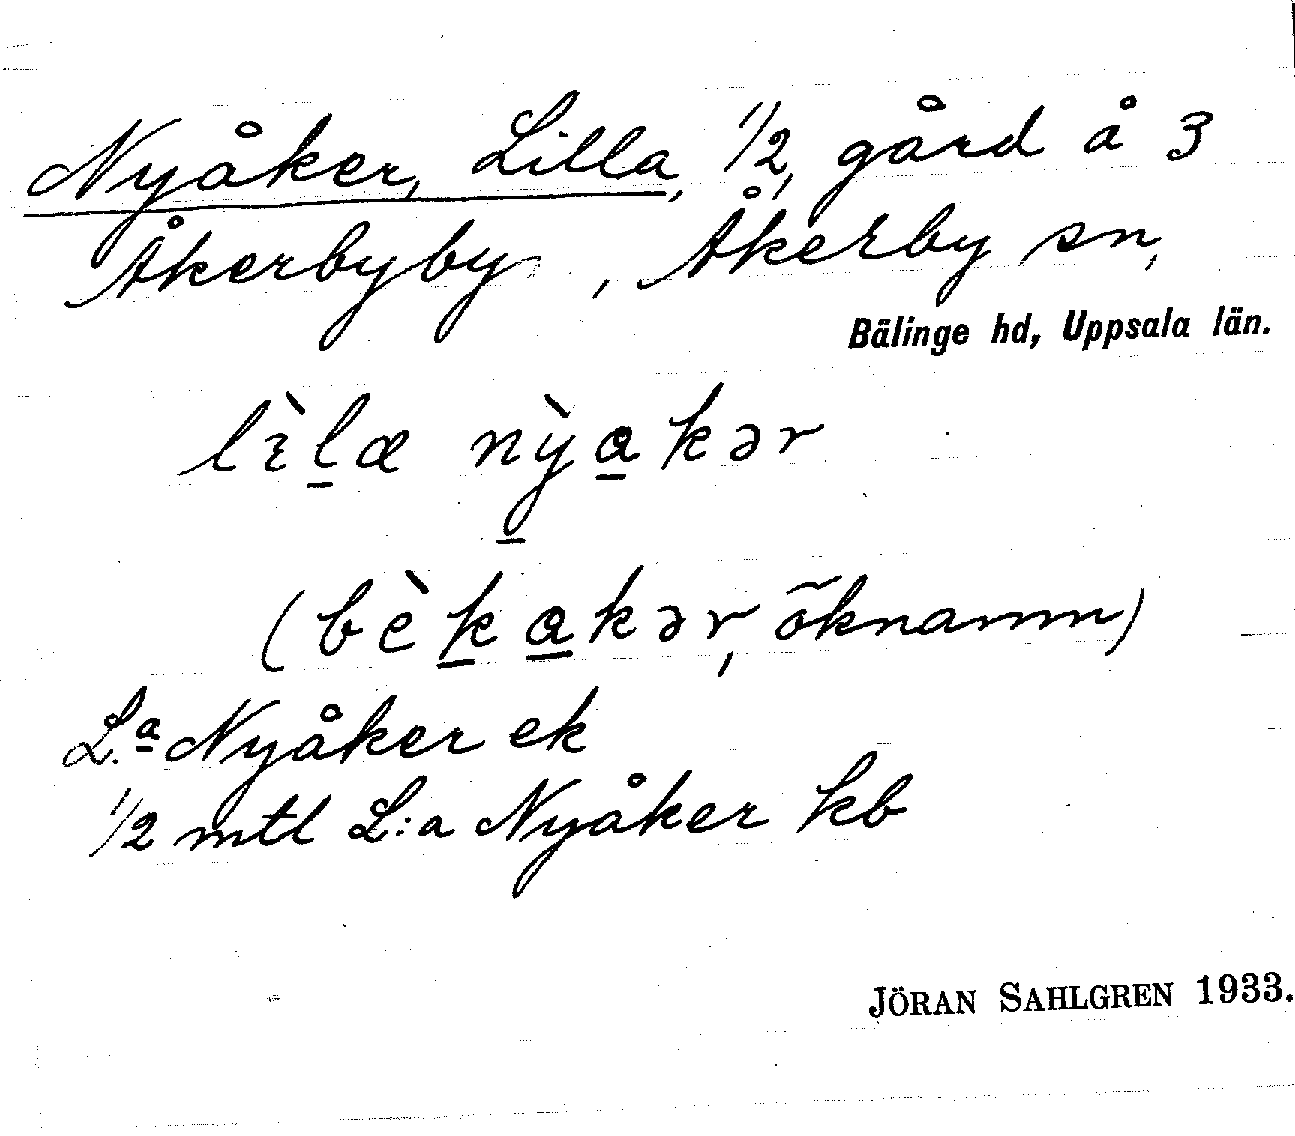 Nyåker, Lilla, 1/2, gård å 3
Åkerbyby, Åkerby sn,
Bälinge hd, Uppsala län.
lìl̲æ nỳ̲a̲kər
(bèk̲a̲kər, öknamn)
L.a Nyåker ek
1/2 mtl L:a Nyåker kb
JÖRAN SAHLGREN 1933.